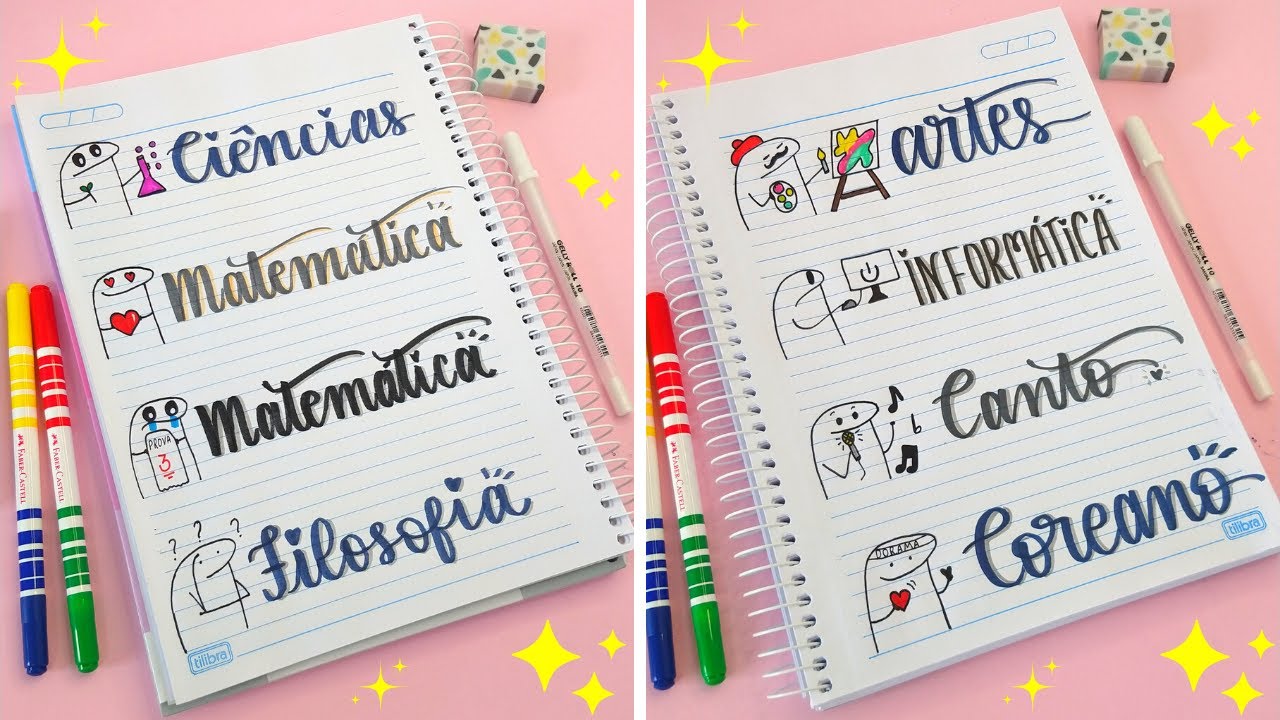 Ciências
Matemática
Matemática
PROVA
3
Filosofia
? ? ?
tilibra
FABER-CASTELL
FABER-CASTELL
GELLY ROLL 10
artes
INFORMÁTICA
Canto
Coreano
DORAMA
tilibra
FABER-CASTELL
FABER-CASTELL
GELLY ROLL 10